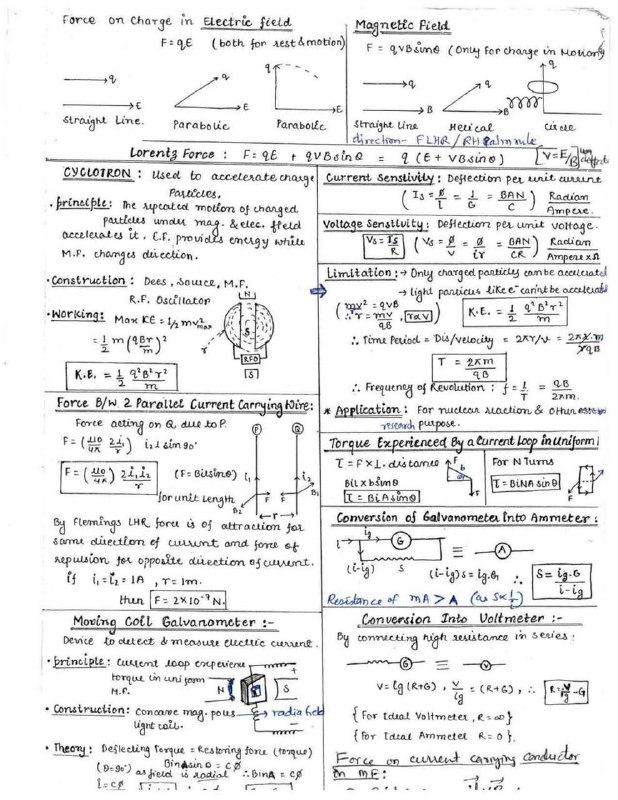 Force on Charge in Electric field
F = qE (both for rest & motion)
q
E
Straight Line.
q
E
Parabolic
q
E
Parabolic
Magnetic Field
F = qVBsinθ (Only for charge in Motion)
q
B
Straight Line
q
B
Helical
q
Circle
direction - FLHR / RH Palm rule
Lorentz Force : F = qE + qVBsinθ = q (E + VBsinθ)
V = E/B
CYCLOTRON : Used to accelerate charge
Particles.
• principle : The repeated motion of charged
particles under mag. & elec. field
accelerates it. E.F. provides energy while
M.F. changes direction.
• Construction : Dees, Source, M.F.
R.F. Oscillator
• Working : Max KE = 1/2 mv²max
= 1/2 m (qBr/m)²
K.E. = 1/2 q²B²r²/m
N
S
r
RFO
S
Current Senstivity : Deflection per unit current
(Is = Ø/i = 1/G = BAN/C) Radian/Ampere.
Voltage Senstivity : Deflection per unit voltage.
Vs = Is/R (Vs = Ø/V = Ø/ir = BAN/CR) Radian/Ampere×Ω
Limitation : → Only charged particles can be accelerated
→ light particles like e⁻ can't be accelerated
(mv²/r = qVB
∴ r = mv/qB, r∝v)
K.E. = 1/2 q²B²r²/m
∴ Time Period = Dis/velocity = 2πr/v = 2πr·m/rqB
T = 2πm/qB
∴ Frequency of Revolution : f = 1/T = qB/2πm.
* Application : For nuclear reaction & other
research purpose.
Force B/W 2 Parallel Current Carrying Wire :
Force acting on Q due to P.
F = (μ0/4π 2i1/r) i2 l sin90°
F = (μ0/4π) 2i1i2/r (F = Bilsinθ)
for unit length
P
Q
i1
i2
F
F
B2
B1
r
By Flemings LHR force is of attraction for
same direction of current and force of
repulsion for opposite direction of current.
if i1 = i2 = 1A , r = 1m.
then F = 2×10⁻⁷ N.
Torque Experienced By a Current Loop in Uniform
τ = F × ⊥. distance
Bil × bsinθ
τ = BiAsinθ
F
b
θ
F
For N Turns
τ = BiNA sinθ
F
F
Conversion of Galvanometer Into Ammeter :
i
ig
G
(i-ig)
S
≡
A
(i-ig)S = ig.G ∴ S = ig.G/i-ig
Resistance of mA > A (as S∝1/i)
Moving Coil Galvanometer :-
Device to detect & measure electric current.
• principle : Current loop experience
torque in uniform
M.F.
N
S
+
• Construction : Concave mag. poles → radial field
light coil.
• Theory : Deflecting Torque = Restoring force (torque)
BinAsinθ = CØ
(θ = 90°) as field is radial ∴ BinA = CØ
i = CØ
Conversion Into Voltmeter :-
By connecting high resistance in series :
G
≡
V
V = ig (R+G) , V/ig = (R+G) , ∴ R = V/ig - G
{For Ideal Voltmeter, R = ∞}
{For Ideal Ammeter R = 0}.
Force on current carrying conductor
in MF :